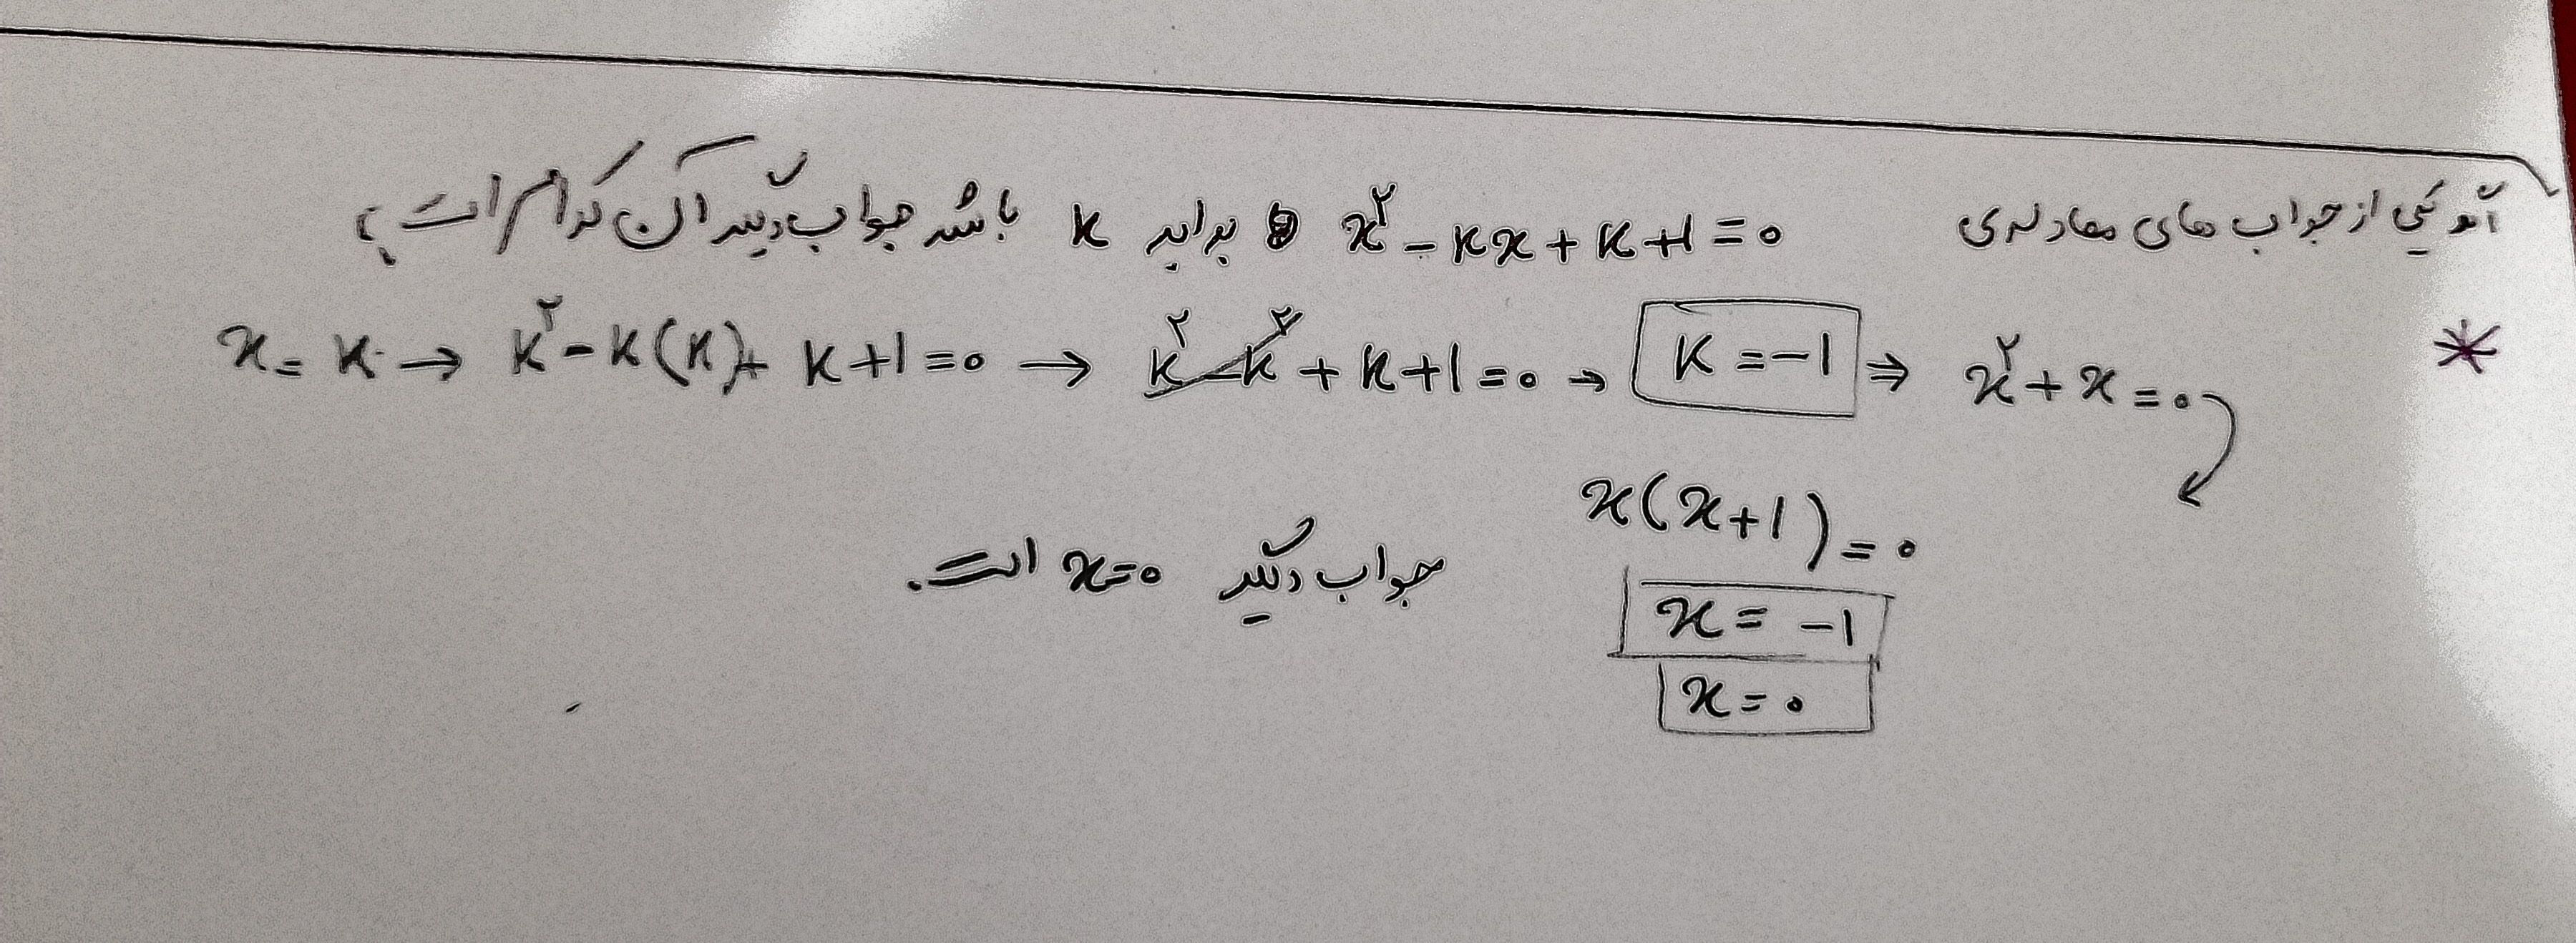 اگر یکی از جواب های معادله‌ی x²-kx+k+1=0 برابر k باشد جواب دیگر آن کدام است؟
* x=k → k²-k(k)+k+1=0 → k²-k²+k+1=0 → k=-1 ⇒ x²+x=0
x(x+1)=0
x=-1
جواب دیگر x=0 است.
x=0